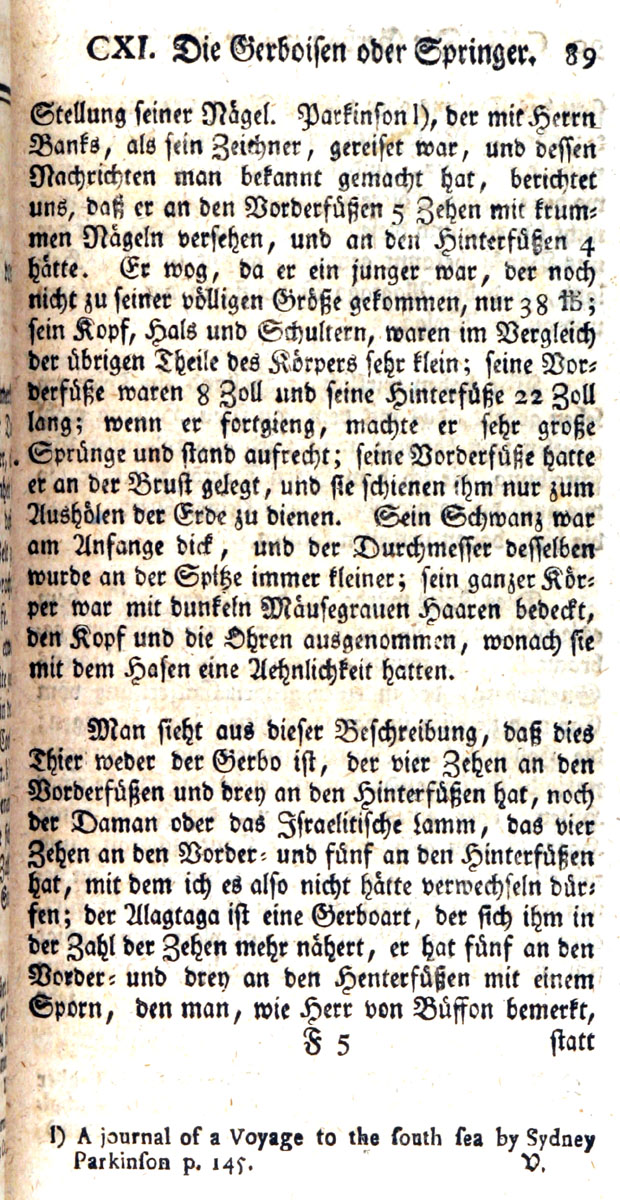 CXI. Die Gerboisen oder Springer. 89
Stellung seiner Nägel. Parkinson l), der mit Herrn
Banks, als sein Zeichner, gereiset war, und dessen
Nachrichten man bekannt gemacht hat, berichtet
uns, daß er an den Vorderfüßen 5 Zehen mit krum-
men Nägeln versehen, und an den Hinterfüßen 4
hätte. Er wog, da er ein junger war, der noch
nicht zu seiner völligen Größe gekommen, nur 38 ℔;
sein Kopf, Hals und Schultern, waren im Vergleich
der übrigen Theile des Körpers sehr klein; seine Vor-
derfüße waren 8 Zoll und seine Hinterfüße 22 Zoll
lang; wenn er fortgieng, machte er sehr große
Sprünge und stand aufrecht; seine Vorderfüße hatte
er an der Brust gelegt, und sie schienen ihm nur zum
Aushölen der Erde zu dienen. Sein Schwanz war
am Anfange dick, und der Durchmesser desselben
wurde an der Spitze immer kleiner; sein ganzer Kör-
per war mit dunkeln Mäusegrauen Haaren bedeckt,
den Kopf und die Ohren ausgenommen, wonach sie
mit dem Hasen eine Aehnlichkeit hatten.
Man sieht aus dieser Beschreibung, daß dies
Thier weder der Gerbo ist, der vier Zehen an den
Vorderfüßen und drey an den Hinterfüßen hat, noch
der Daman oder das Israelitische Lamm, das vier
Zehen an den Vorder- und fünf an den Hinterfüßen
hat, mit dem ich es also nicht hätte verwechseln dür-
fen; der Alagtaga ist eine Gerboart, der sich ihm in
der Zahl der Zehen mehr nähert, er hat fünf an den
Vorder- und drey an den Henterfüßen mit einem
Sporn, den man, wie Herr von Büffon bemerkt,
F 5 statt
l) A journal of a Voyage to the south sea by Sydney
Parkinson p. 145. V.